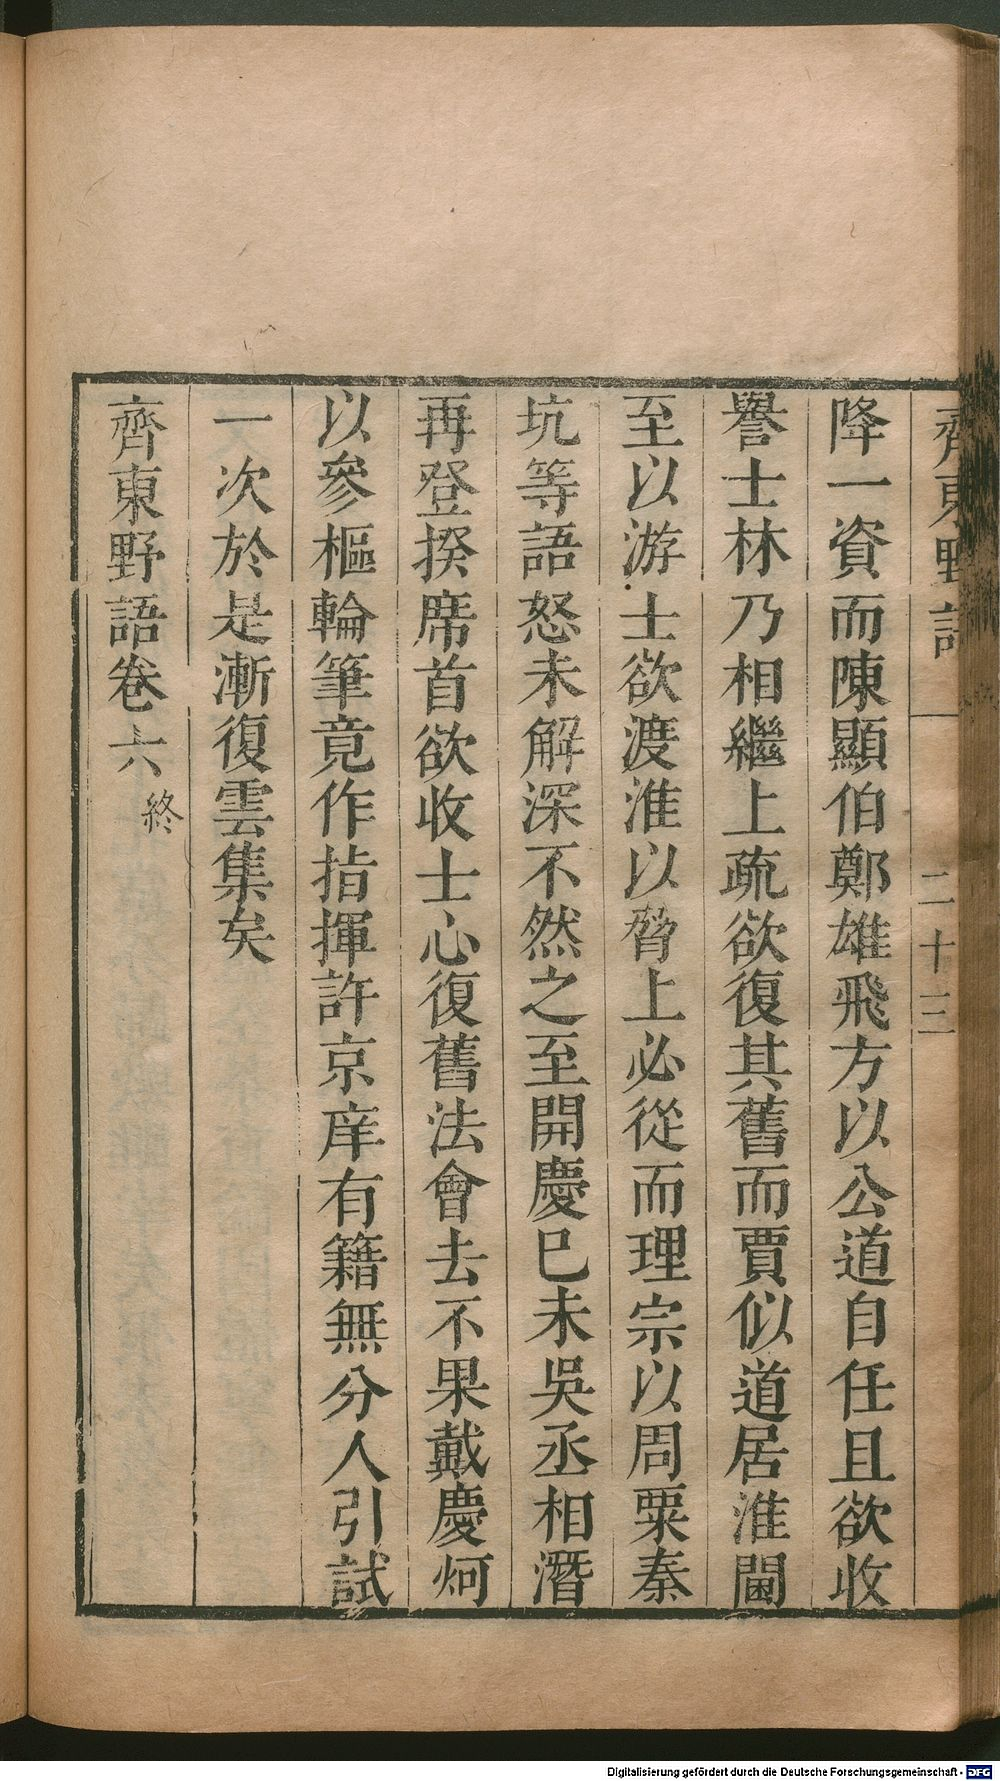 齊東野語 二十三
降一資而陳顯伯鄭雄飛方以公道自任且欲收
譽士林乃相繼上疏欲復其舊而賈似道居淮閫
至以游士欲渡淮以脅上必從而理宗以周粟秦
坑等語怒未解深不然之至開慶巳未吳丞相潛
再登揆席首欲收士心復舊法會去不果戴慶炣
以參樞輪筆竟作指揮許京庠有籍無分人引試
一次於是漸復雲集矣
齊東野語卷六 終
Digitalisierung gefördert durch die Deutsche Forschungsgemeinschaft - DFG